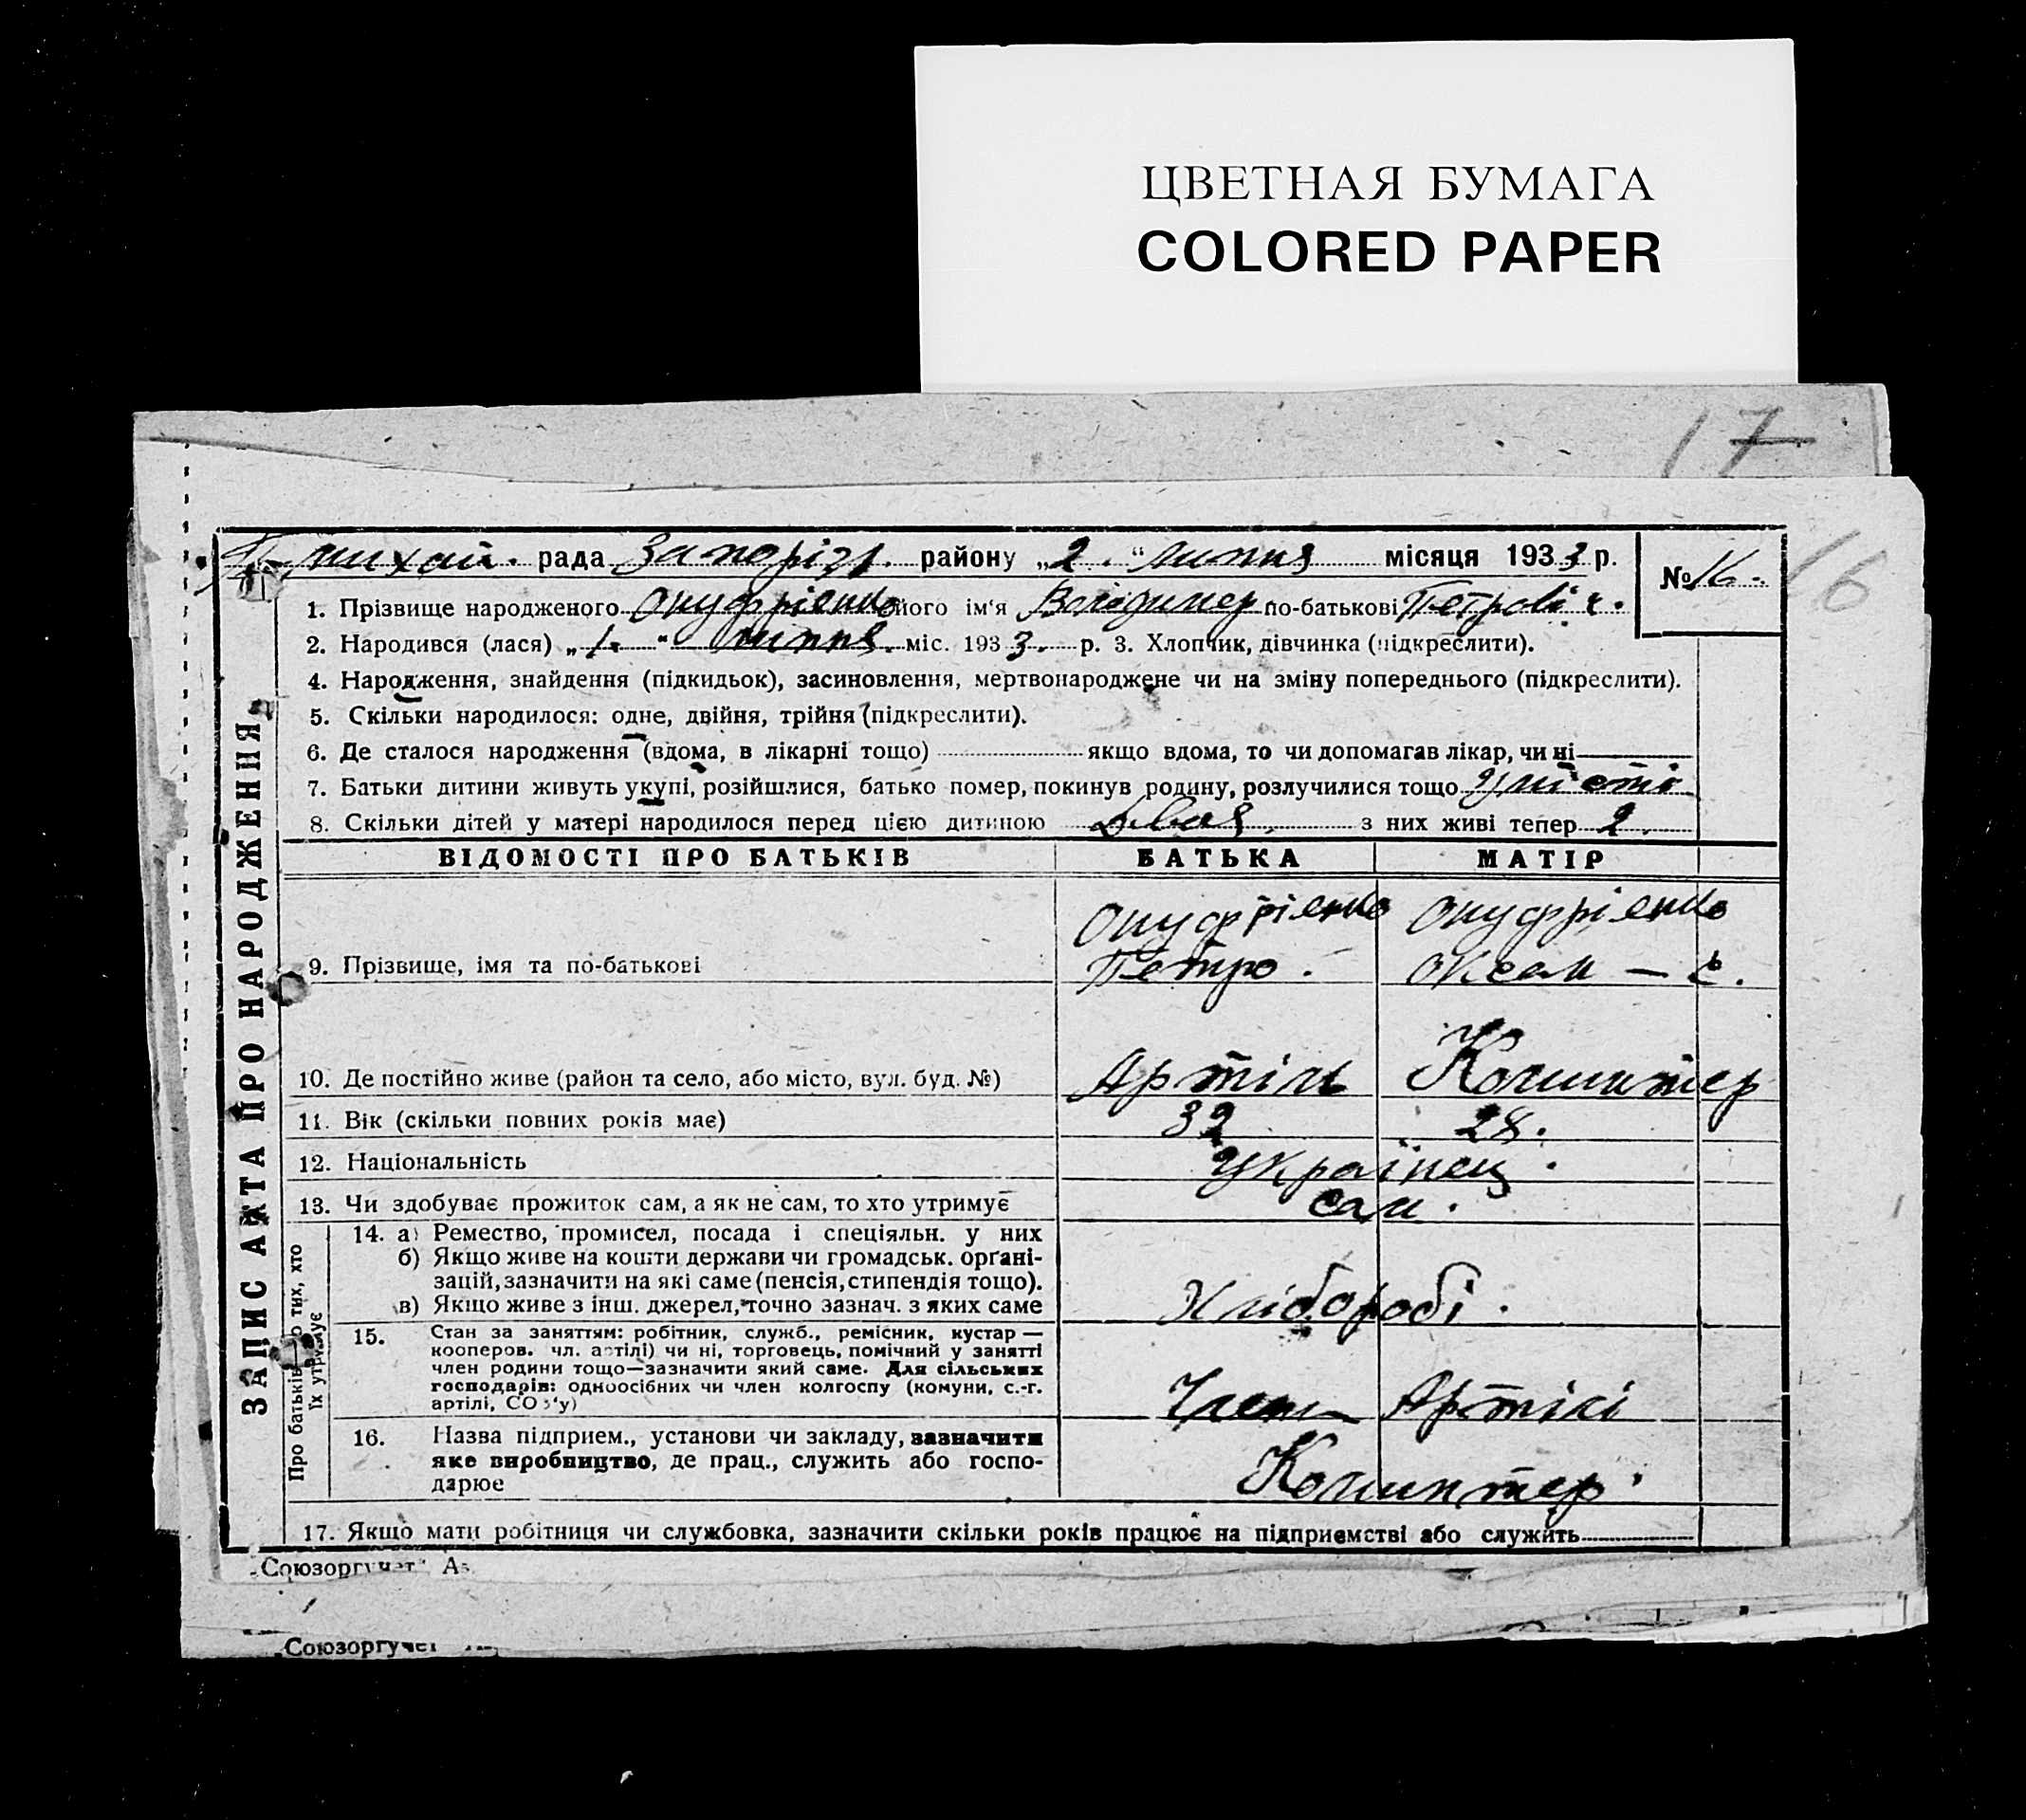 ЦВЕТНАЯ БУМАГА
COLORED PAPER
17
михай. рада Запоріз. району „2.“ липня місяця 1933 р.
№ 16.
16
1. Прізвище народженого Онуфрієнко його ім‘я Володимер по-батькові Петрові ч.
2. Народився (лася) „1.“ липня. міс. 1933. р. 3. Хлопчик, дівчинка (підкреслити).
4. Народження, знайдення (підкидьок), засиновлення, мертвонароджене чи на зміну попереднього (підкреслити).
5. Скільки народилося: одне, двійня, трійня (підкреслити).
6. Де сталося народження (вдома, в лікарні тощо) якщо вдома, то чи допомагав лікар, чи ні
7. Батьки дитини живуть укупі, розійшлися, батько помер, покинув родину, розлучилися тощо
8. Скільки дітей у матері народилося перед цією дитиною двоя. з них живі тепер 2.
ВІДОМОСТІ ПРО БАТЬКІВ БАТЬКА МАТІР
Онуфрієнко Онуфрієнко
9. Прізвище, імя та по-батькові Петро. Оксан
10. Де постійно живе (район та село, або місто, вул. буд. №) Артіль Комінтер
11. Вік (скільки повних років має) 32 28.
12. Національність Українец.
13. Чи здобуває прожиток сам, а як не сам, то хто утримує сам.
14. а) Ремество, промисел, посада і спеціяльн. у них
б) Якщо живе на кошти держави чи громадськ. органі-
зацій, зазначити на які саме (пенсія, стипендія тощо).
в) Якщо живе з інш. джерел, точно зазнач. з яких саме Хліборобі.
15. Стан за заняттям: робітник, служб., ремісник, кустар —
кооперов. чл. артілі) чи ні, торговець, помічний у занятті
член родини тощо—зазначити який саме. Для сільських
господарів: одноосібних чи член колгоспу (комуни, с.-г.
артілі, СОЗ‘у) Член Артілі
16. Назва підприєм., установи чи закладу, зазначити
яке виробництво, де прац., служить або госпо-
дарює Комінтер.
17. Якщо мати робітниця чи службовка, зазначити скільки років працює на підприємстві або служить
ЗАПИС АКТА ПРО НАРОДЖЕННЯ
Про батьків о тих, хто
їх утримує
„Союзоргучет“
„Союзоргучет